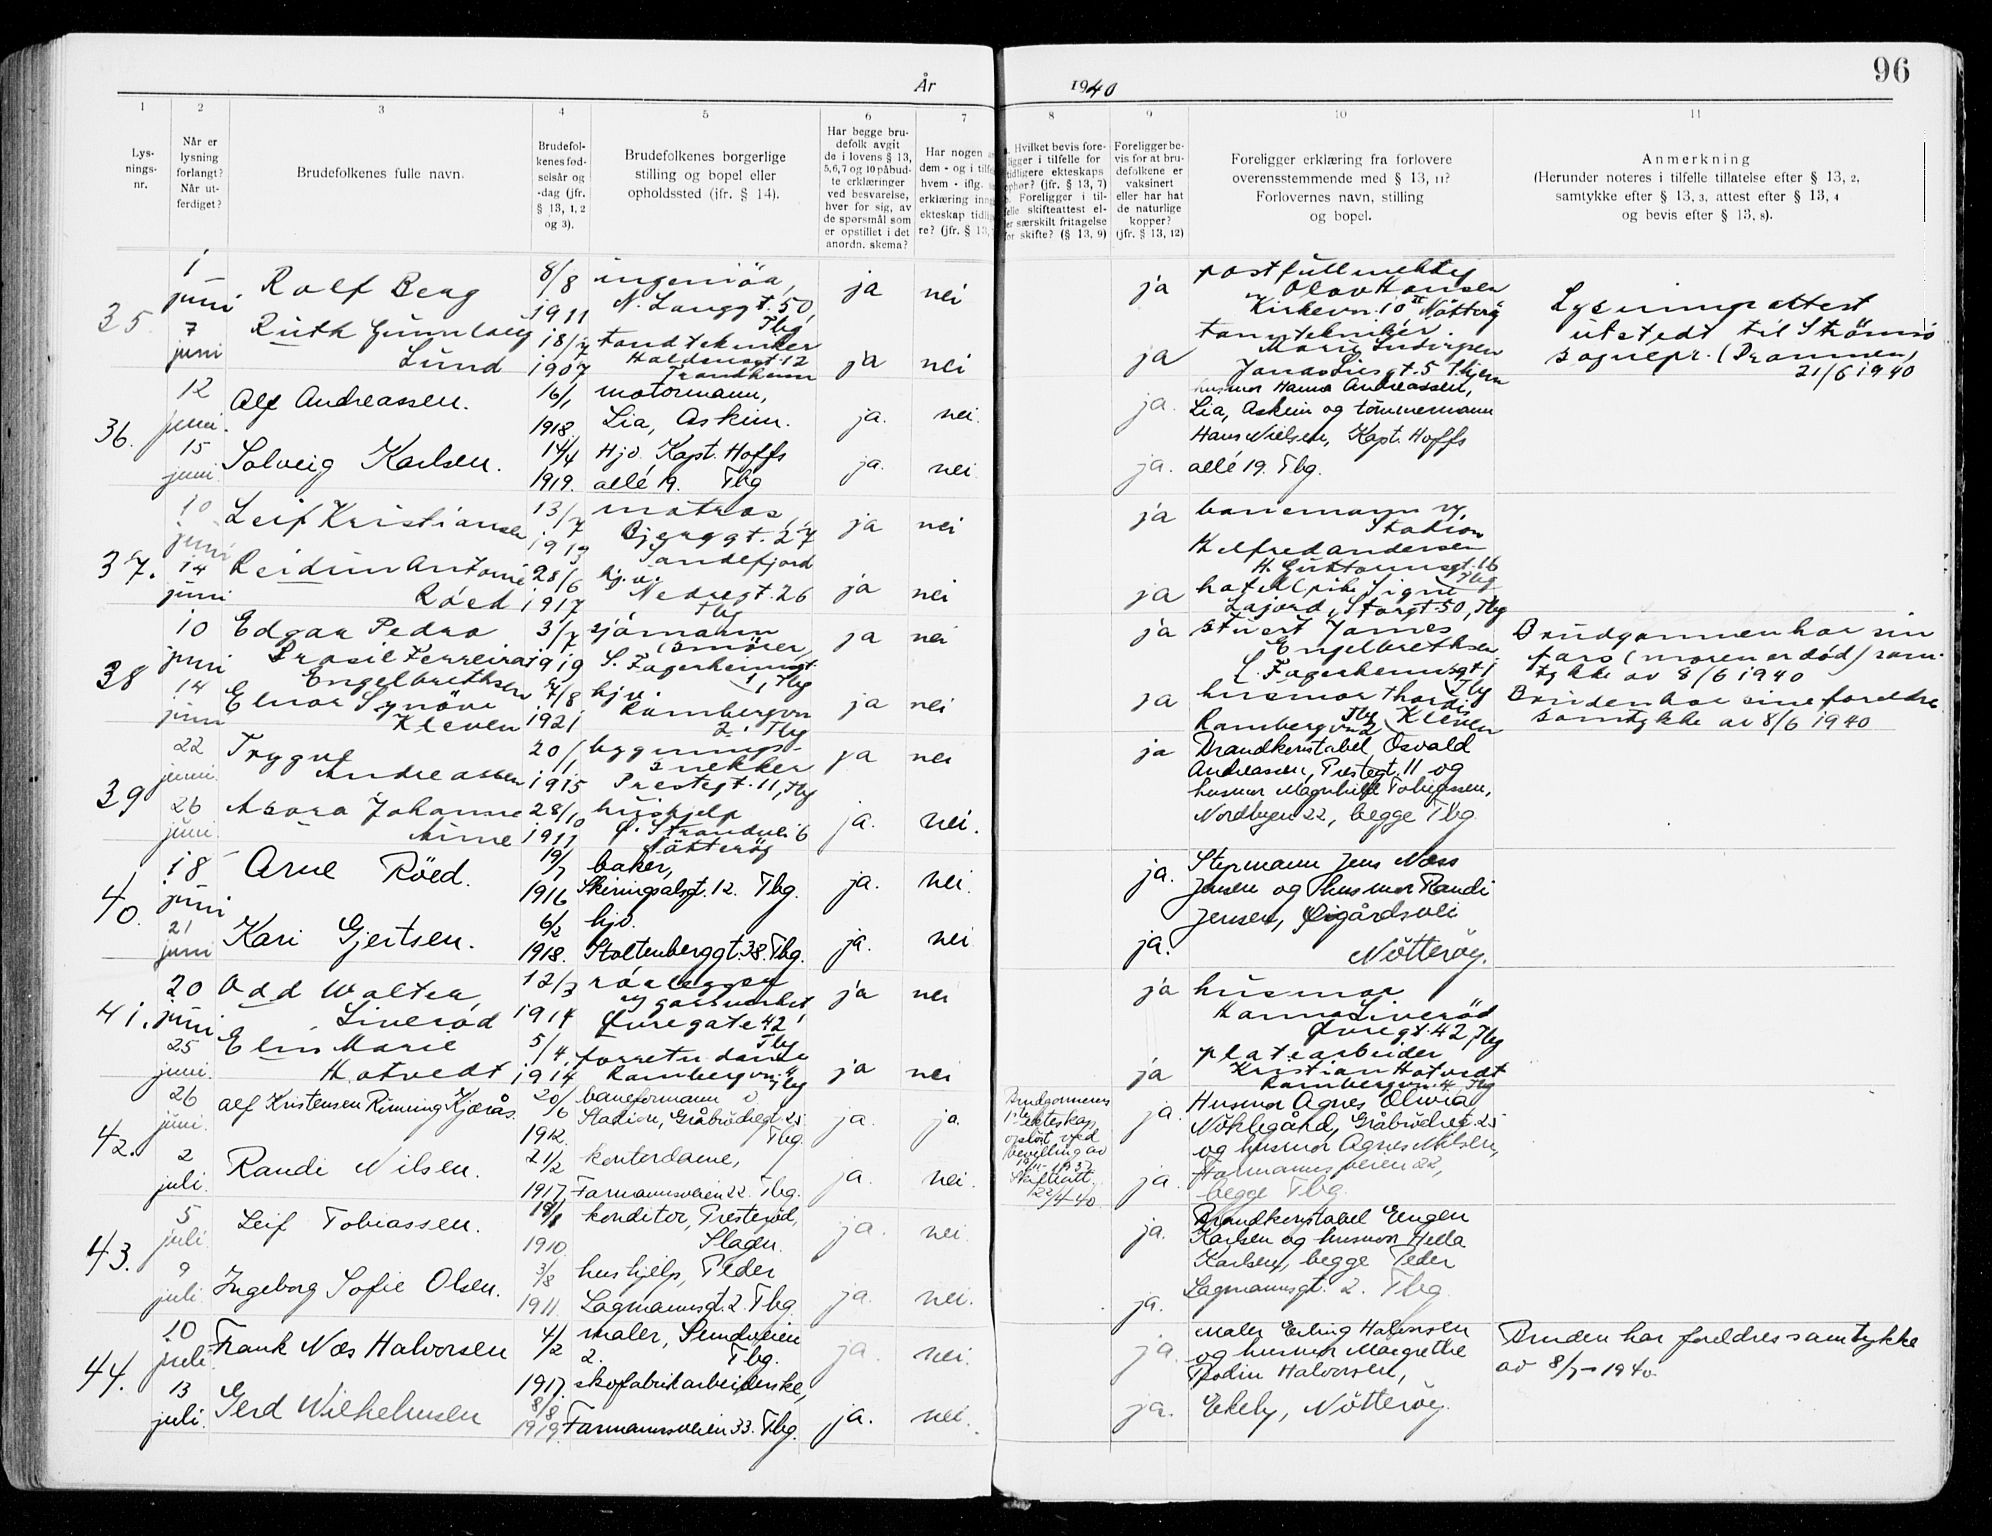 96
År 1940
1 2 3 4 5 6 7 8 9 10 11
Lys-
nings-
nr.
Når er
lysning
forlangt?
Når ut-
ferdiget?
Brudefolkenes fulle navn.
Brudefol-
kenes fød-
selsår og
-dag (jfr.
§ 13, 1, 2
og 3).
Brudefolkenes borgerlige
stilling og bopel eller
opholdssted (jfr. § 14).
Har begge bru-
defolk avgit
de i lovens § 13,
5,6,7 og 10 påbud-
te erklæringer
ved besvarelse,
hver for sig, av
de spørsmål som
er opstillet i det
anordn. skema?
Har nogen
dem - og i tilfe
hvem - iflg.
erklæring inng
ekteskap tidlig
re? (jfr. § 13,
Hvilket bevis fore-
ligger i tilfelle for
tidligere ekteskaps
ophør? (jfr. § 13, 7)
b. Foreligger i til-
felle skifteattest el-
ler særskilt fritagelse
for skifte? (§ 13, 9)
Foreligger be-
vis for at bru-
defolkene er
vaksinert
eller har hat
de naturlige
kopper?
(jfr. § 13, 12)
Foreligger erklæring fra forlovere
overensstemmende med § 13, 11?
Forlovernes navn, stilling
og bopel.
Anmerkning
(Herunder noteres i tilfelle tillatelse efter § 13, 2,
samtykke efter § 13, 3, attest efter § 13, 4
og bevis efter § 13, 8).
35.
1 juni
Rolf Berg
8/8 1911
ingeniör,
N. Langgt. 50,
Tbg
ja nei
ja
postfullmektig
Olav Hansen
Kirkevn. 10 II Nötteröy
Lysningsattest
utstedt til Strömsö
sognepr. (Drammen)
21/6 1940
7 juni
Ruth Gunnlaug
Lund
18/7 1907
tandtekniker
Haldensgt. 12
Trondheim
ja nei
ja
tanntekniker
Marie Ludvigsen
Jonas Liesgt. 5
36.
12 juni.
Alf Andreassen.
16/1 1918.
motormann,
Lia, Askim.
ja. nei.
ja.
husmor Hanna Andreassen,
Lia, Askim og tömmermann
Hans Nielsen, Kapt. Hoffs
allé 19. Tbg.
15 juni
Solveig Karlsen.
14/4 1919.
Hjv. Kapt. Hoffs
allé 19. Tbg
ja. nei
ja.
37.
10 juni
Leif Kristiansen
13/7 1913
matros,
Bjerggt. 27
Sandefjord
ja nei
ja
banemann v.
Stadion
H. Guttormsgt. 16
Tbg
14 juni
Reidun Antonie
Röed
28/6 1917
hj.v.
Nedregt. 26
Tbg
ja nei
ja
hotellpike Signe
Lajord, Storgt 50, Tbg
38
10 juni
Edgar Pedro
Brasil Ferreira
Engelbrethsen
3/7 1919
sjömann
smörer,
S. Fagerheimsgt.
1, Tbg
ja nei
ja
stuert James
Engelbrethsen
S. Fagerheimsgt 1
Tbg
Brudgommen har sin
fars (moren er död) sam-
tykke av 8/6 1940
14 juni
Elnor Synöve
Kleven
7/8 1921
hjv.
Rambergvn
2, Tbg
ja nei
ja
husmor Thordis
Kleven
Rambergvn 2 Tbg
Bruden har sine foreldres
samtykke av 8/6 1940
39
22 juni.
Trygve
Andreassen
20/1 1915
bygnings-
snekker
Prestegt. 11, Tbg
ja nei
ja
Brandkonstabel Osvald
Andreassen, Prestegt. 11 og
husmor Magnhild Tobiassen,
Nordbyen 22, begge Tbg.
26 juni.
Asora Johanne
Arne
28/10 1911
hushjelp
Ö. Strandvei 6
Nötteröy
ja. nei.
40.
18 juni
Arne Röed.
19/7 1916
baker,
Skiringsalsgt. 12. Tbg.
ja. nei.
ja.
Styrmann Jens Næss
Jensen og husmor Randi
Jensen, Øigårdsvei
Nötteröy.
21 juni
Kari Gjertsen.
6/2 1918.
hjv.
Stoltenberggt. 38. Tbg.
ja. nei
ja.
41.
20 juni
Odd Walter
Liveröd
12/3 1914
rörlegger
v/ gassverket,
Øvregate 42,
Tbg
ja nei
ja
husmor
Hanna Liveröd
Øvregt. 42, Tbg
25 juni.
Elin Marie
Hotvedt
5/4 1914
forretn. dame
Rambergvn. 4
Tbg
ja nei
ja
platearbeider
Kristian Hotvedt
Rambergvn. 4. Tbg
42.
26 juni.
Alf Kristensen Rinning Kjærås.
20/6 1912.
baneformann v
Stadion, Gråbrödregt. 25
Tbg.
ja. ja.
Brudgommens
1ste ekteskap
oplöst ved
bevilling av
Skifteatt.
22/4-40.
ja.
Husmor Agnes Olivia
Nöklegård, Gråbrödregt. 25
og husmor Agnes Nilsen,
Farmannsveien 22,
begge Tbg.
2 juli.
Randi Nilsen.
21/2 1917
kontordame,
Farmannsveien 22. Tbg.
ja. nei.
ja.
43.
5 juli.
Leif Tobiassen.
18/8 1910.
konditor, Presteröd,
Slagen.
ja. nei.
ja.
Brandkonstabel Eugen
Karlsen og husmor Hella
Karlsen, begge Peder
Lagmannsgt. 2. Tbg.
9 juli.
Ingeborg Sofie Olsen.
3/8 1911.
hushjelp, Peder
Lagmannsgt. 2. Tbg.
ja. nei.
ja.
44.
10 juli
Frank Næs Halvorsen
4/2 1917.
maler, Sundveien
2. Tbg.
ja. nei.
ja.
Maler Erling Halvorsen
og husmor Margrethe
Bodin Halvorsen,
Ekely, Nötteröy.
Bruden har foreldres samtykke
av 8/7-1940.
13 juli.
Gerd Wilhelmsen
8/8 1919.
skofabrikarbeiderske,
Farmannsveien 33. Tbg.
ja. nei.
ja.